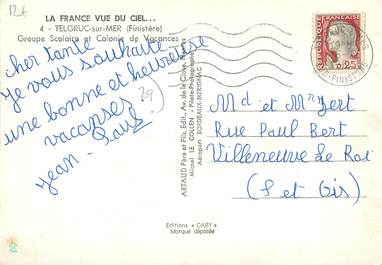 12€
LA FRANCE VUE DU CIEL...
4 - TELGRUC-sur-MER (Finistère)
Groupe Scolaire et Colonie de Vacances
cher tante
Je vous souhaite
une bonne et heureuse
vacances
Jean-Paul
ARTAUD Père et Fils, Edit., Av. de la Close, Nantes
Michel LE COLLEN - Pilote-Photographe
Aéroport BORDEAUX-MERIGNAC
REPUBLIQUE
FRANÇAISE
0,25
FINISTERE
Md et Mr Jert
Rue Paul Bert
Villeneuve Le Roi
(S et Ois)
Editions "GABY"
Marque déposée